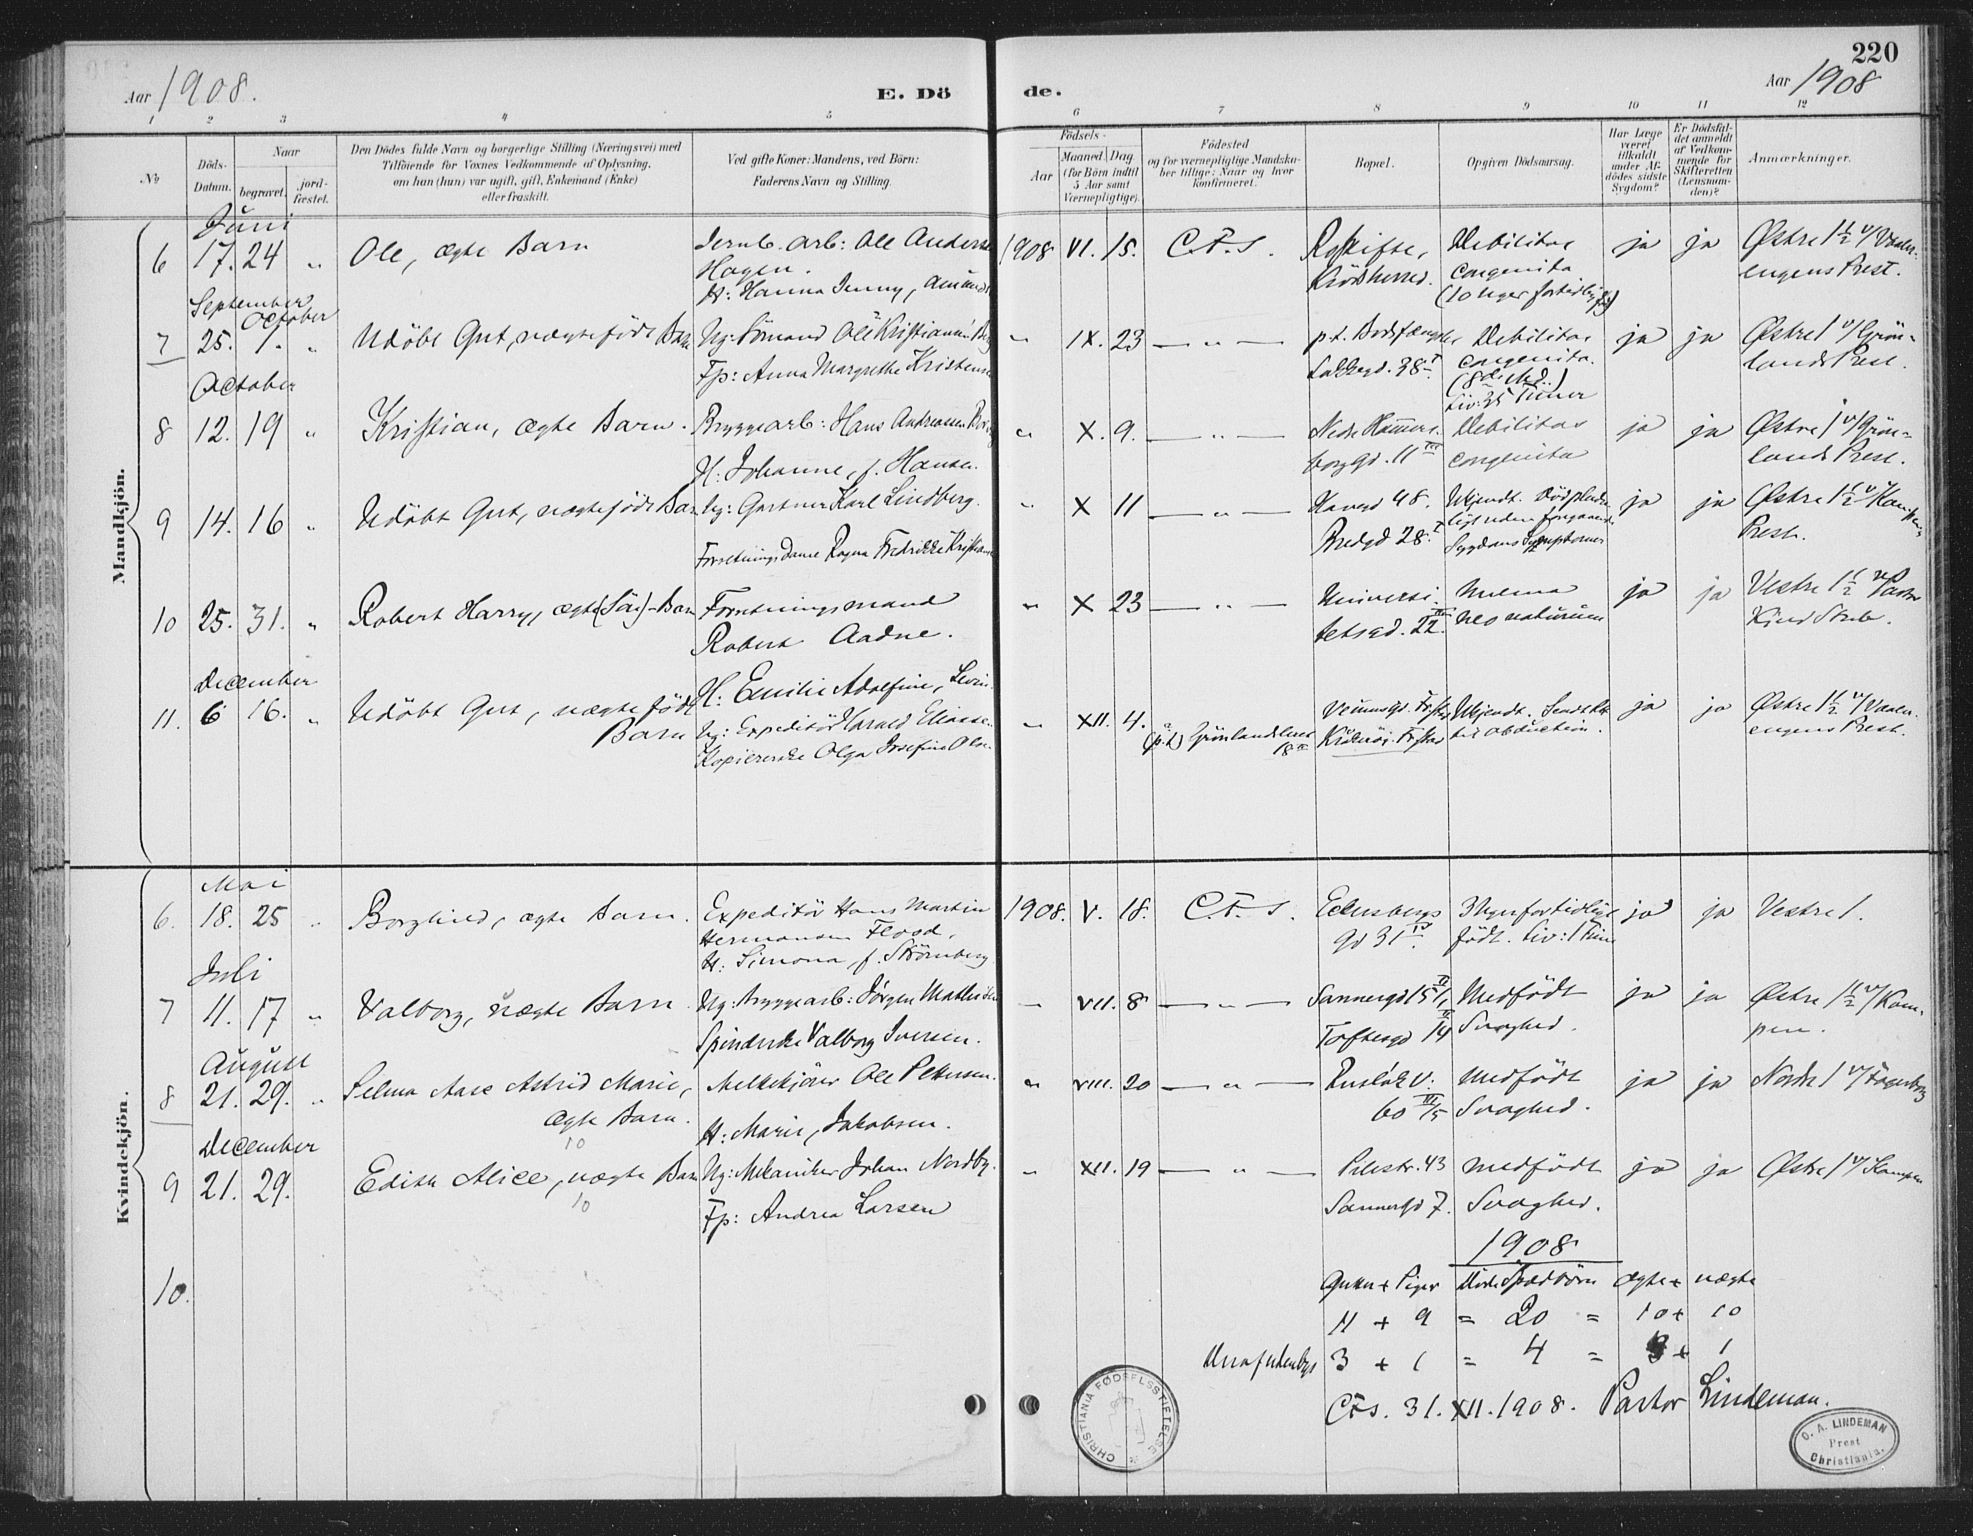 220
Aar 1908.
E. Dö
de.
Aar 1908
1 2 3 4 5 6 7 8 9 10 11 12
No
Döds-
Datum.
Naar
begravet.
jord-
fæstet.
Den Dödes fulde Navn og borgerlige Stilling (Næringsvei) med
Tilföiende for Voxnes Vedkommende af Oplysning,
om han (hun) var ugift, gift, Enkemand (Enke)
eller fraskilt.
Ved gifte Koner: Mandens, ved Börn:
Faderens Navn og Stilling.
Födsels-
Aar
Maaned Dag
(for Börn indtil
5 Aar samt
Værnepligtige).
Födested
og for værnepligtige Mandska-
ber tillige: Naar og hvor
konfirmeret.
Bopæl.
Opgiven Dödsaarsag.
Har Læge
været
tilkaldt
under Af-
dödes sidste
Sygdom?
Er Dödsfal-
det anmeldt
af Vedkom-
mende for
Skifteretten
(Lensman-
den)?
Anmærkninger.
Mandkjön.
Juni
6 17. 24 " Ole, ægte Barn
Jernb. arb: Ole Anders
Hagen.
H: Hanna Jenny, Amunds
1908 VI. 15. C.F.S.
Krödsherred.
Debilitas
congenita
(10 uger fortidlig
ja ja Østre 1 1/2 v/Vaaler-
engens Prest.
September
October
7 25. 1. " Udöbt Gut, uægtefödt Barn
Ug: Sömand Ole Kristiansen
Fp: Anna Margrethe Kristens
" IX. 23 — " —
Lakkegd. 38 I
Debilitas
congenita.
Liv: 35 Timer
ja ja Østre 1 v/Grön-
lands Prest.
October
8 12. 19 " Kristian, ægte Barn.
Bryggearb: Hans Andreasen
H. Johanne, f. Hansen.
" X. 9. — " —
Nedre Hammers-
borggd. 11 III
Debilitas
congenita
ja ja Østre 1 v/Grön-
lands Prest.
9 14. 16 " Udöbt Gut, uægtefödt Barn
Ug: Gartner Karl Lindberg.
Forretningsdame Ragna Fredrikke Kristians
" X 11 — " —
Havegd 48.
Bredgd 28. I
Ukjendt. Död pludse
ligt uden foregaaende
Sygdoms Symptomer
ja ja Østre 1 1/2 v/Kampens
Prest.
10 25. 31. " Robert Harry, ægte (Sör)-Barn
Forretningsmand
Robert Aadne.
H: Emilie Adolfine, Levin
" X 23 — " —
Universi-
tetsgd. 22. III
neonatorum
ja ja Vestre 1 1/2 v/Pastor
December
11. 6 16. " Udöbt Gut, uægte födt
Barn
Ug: Expeditör Harald Eliasse
Kopiererske Olga Josefine Olse
" XII. 4. (p.t.) Grönlandsleret
18 II
Ukjendt. Sendt
til obduction.
ja ja Østre 1 1/2 v/Vaaler-
engens Prest.
Kvindekjön.
Mai
6. 18. 25 " Borghild, ægte Barn.
Expeditör Hans Martin
Hermansen Flood,
H: Simona, f. Strömberg
1908. V. 18. C.F.S.
Eckersbergs
gd 31 IV.
3 Uger fortidligt
födt. Liv: 1 Time
ja ja Vestre 1.
Juli
7 11. 17 " Valborg, uægte Barn
Ug: Bryggearb: Jörgen Mathisen
Spinderske Valborg Iversen.
— VII. 8 — " —
Sannergd 15
Toftesgd 14
Medfödt
Svaghed.
ja ja Østre 1 1/2 v/Kam-
pen.
August
8 21. 29. " Selma Aase Astrid Marie,
ægte Barn.
Melkekjörer Ole Pettersen.
H: Marie, Jakobsen.
" VIII. 20 — " —
Ruslök v.
60 III/5
Medfödt
Svaghed.
ja ja Nordre 1 v/Fagerborg
December
10
9 21. 29. Edith Alice, uægte Barn
10
Ug: Mekaniker Johan Nordby.
Fp: Andrea Larsen
" XII. 19 — " —
Pilestr. 43
Sannergd 7.
medfödt
Svaghed.
ja ja Østre 1 v/Kampen
10.
1908
Gutter + Piger Döde Spædbörn ægte + uægte
11 + 9 = 20 = 10 + 10
Heraf utenbys 3 + 1 = 4 = 3 + 1
CFS. 31. XII. 1908. Pastor Lindeman.
CHRISTIANIA FØDSELSSTIFTELSE
O. A. LINDEMAN
Prest
Christiania.